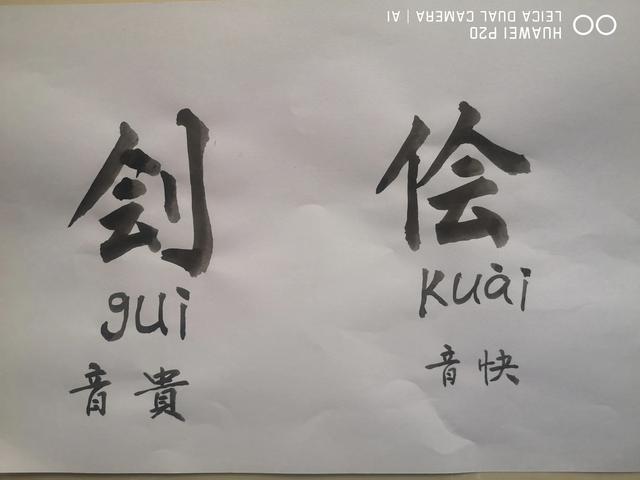 刽
gui
音貴
侩
kuài
音快
HUAWEI P20
LEICA DUAL CAMERA | AI